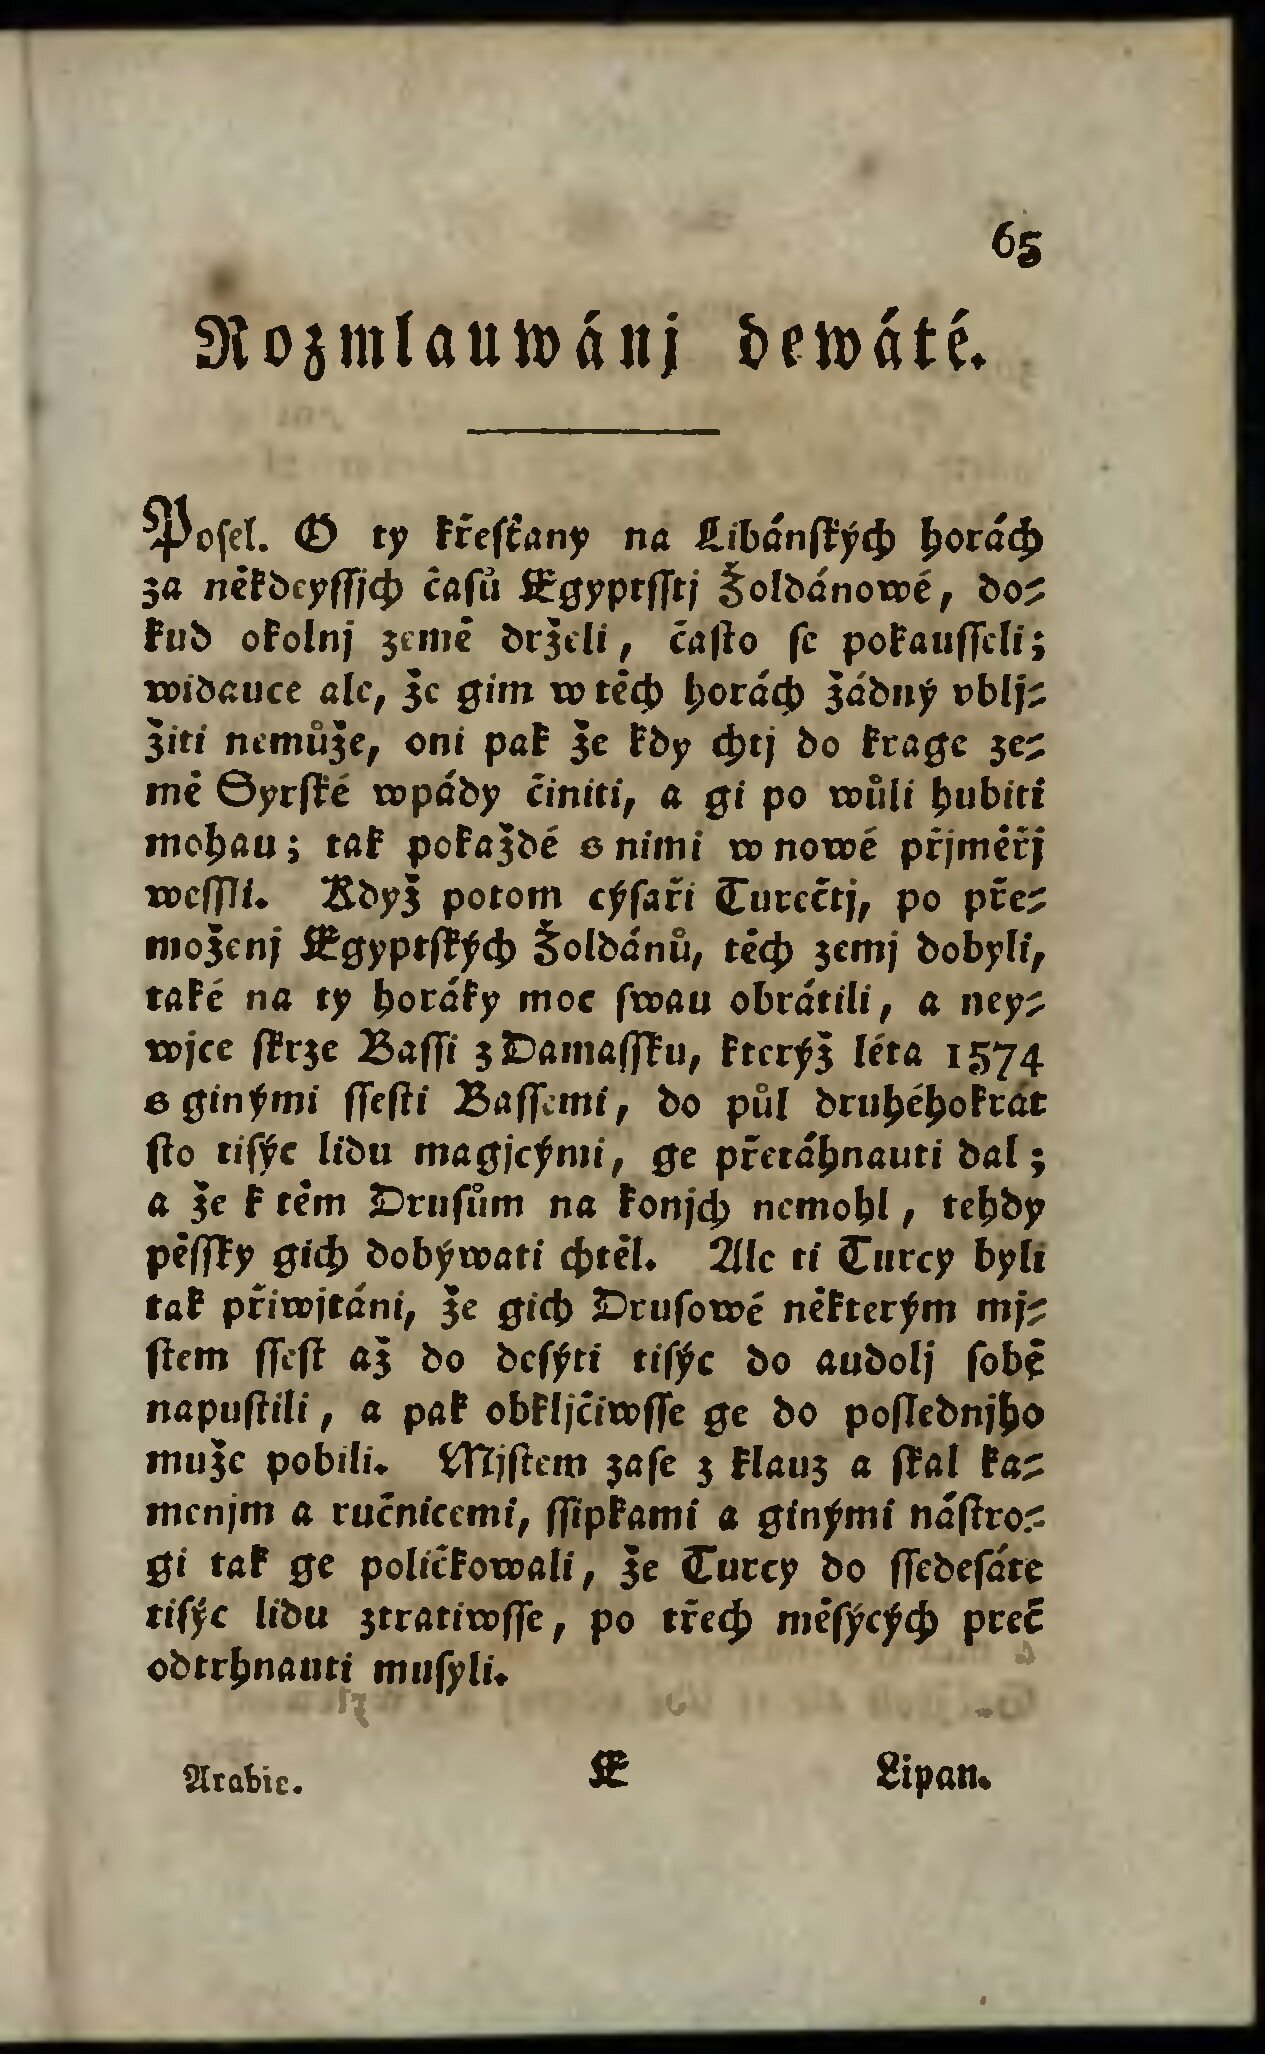 65
Rozmlauwánj dewáté.
Posel. O ty křesťany na Libánských horách
za někdeyssjch časů Egyptsstj Žoldánowé, do-
kud okolnj země drželi, často se pokausseli;
widauce ale, že gim w těch horách žádný vblj-
žiti nemůže, oni pak že kdy chtj do krage ze-
mě Syrské wpády činiti, a gi po wůli hubiti
mohau; tak pokaždé s nimi w nowé přjměřj
wessli. Když potom cýsaři Turečtj, po pře-
moženj Egyptských Žoldánů, těch zemj dobyli,
také na ty horáky moc swau obrátili, a ney-
wjce skrze Bassi z Damassku, kterýž léta 1574
s ginými ssesti Bassemi, do půl druhéhokrát
sto tisýc lidu magjcými, ge přetáhnauti dal;
a že k těm Drusům na konjch nemohl, tehdy
pěssky gich dobýwati chtěl. Ale ti Turcy byli
tak přiwjtáni, že gich Drusowé některým mj-
stem ssest až do desýti tisýc do audolj sobě
napustili, a pak obkljčiwsse ge do poslednjho
muže pobili. Mjstem zase z klauz a skal ka-
menjm a ručnicemi, ssipkami a ginými nástro-
gi tak ge poličkowali, že Turcy do ssedesáte
tisýc lidu ztratiwsse, po třech měsýcých preč
odtrhnauti musyli.
Arabie. E Lipan.